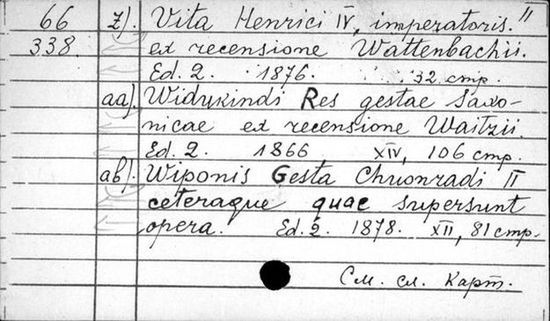 66 z). Vita Henrici IV, imperatoris."
338 ex recensione Wattenbachii.
Ed. 2. 1876. 32 стр.
aa). Widukindi Res gestae Saxo-
nicae ex recensione Waitzii.
Ed. 2. 1866 XIV, 106 стр.
ab). Wiponis Gesta Chuonradi II
ceteraque quae supersunt
opera. Ed. 2. 1878. XII, 81 стр.
См. сл. карт.